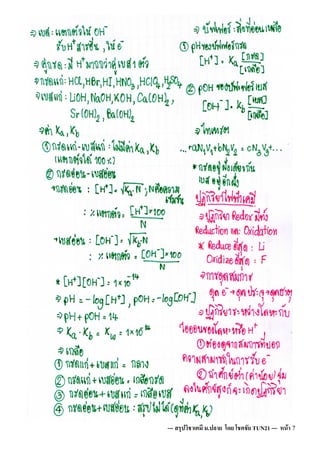 ⇒ เบส: แตกตัวให้ OH⁻
รับ H⁺ สารอื่น, ให้ e⁻
⇒ คู่กรด: มี H⁺ มากกว่าคู่เบส 1 ตัว
⇒ กรดแก่: HCl, HBr, HI, HNO₃, HClO₄, H₂SO₄
⇒ เบสแก่: LiOH, NaOH, KOH, Ca(OH)₂,
Sr(OH)₂, Ba(OH)₂
⇒ ค่า Ka, Kb
① กรดแก่-เบสแก่: ไม่มีค่า Ka, Kb
(แตกตัวได้ 100%)
② กรดอ่อน-เบสอ่อน
→ กรดอ่อน: [H⁺] = √Ka·N, N คือความเข้มข้น
: % แตกตัว = [H⁺]×100 / N
→ เบสอ่อน: [OH⁻] = √Kb·N
: % แตกตัว = [OH⁻]×100 / N
* [H⁺][OH⁻] = 1×10⁻¹⁴
⇒ pH = −log[H⁺], pOH = −log[OH⁻]
⇒ pH + pOH = 14
⇒ Ka · Kb = Kw = 1×10⁻¹⁴
⇒ เกลือ
① กรดแก่ + เบสแก่ = กลาง
② กรดแก่ + เบสอ่อน = เกลือกรด
③ กรดอ่อน + เบสแก่ = เกลือเบส
④ กรดอ่อน + เบสอ่อน : สรุปไม่ได้ (ดูที่ค่า Ka, Kb)
⇒ บัฟเฟอร์: สิ่งที่อ่อนเหลือ
① pH ของบัฟเฟอร์กรด
[H⁺] = Ka [กรด] / [เกลือ]
② pOH ของบัฟเฟอร์เบส
[OH⁻] = Kb [เบส] / [เกลือ]
⇒ ไทเทรต
...+aN₁V₁+bN₂V₂ = cN₃V₃+...
* กรดอยู่ฝั่งเดียวกัน
เบสอยู่อีกฝั่ง
ปฏิกิริยาไฟฟ้าเคมี
⇒ ปฏิกิริยา Redox มีทั้ง
Reduction และ Oxidation
* Reduce ดีสุด : Li
Oxidize ดีสุด : F
⇒ การดุลสมการ
ดุล e⁻ → ดุลประจุ → ดุลธาตุ
⇒ ปฏิกิริยาระหว่างโลหะกับ
ไอออนของโลหะหรือ H⁺
① ต้องดูจากสมการที่บอก
ความสามารถในการรับ e⁻
② ถ้าศักย์ต่ำ (ค่าน้อย) จุ่ม
ลงในศักย์สูงกว่า = เกิดปฏิกิริยา
--- สรุปวิชาเคมี ม.ปลาย โดย โชคชัย TUN21 --- หน้า 7